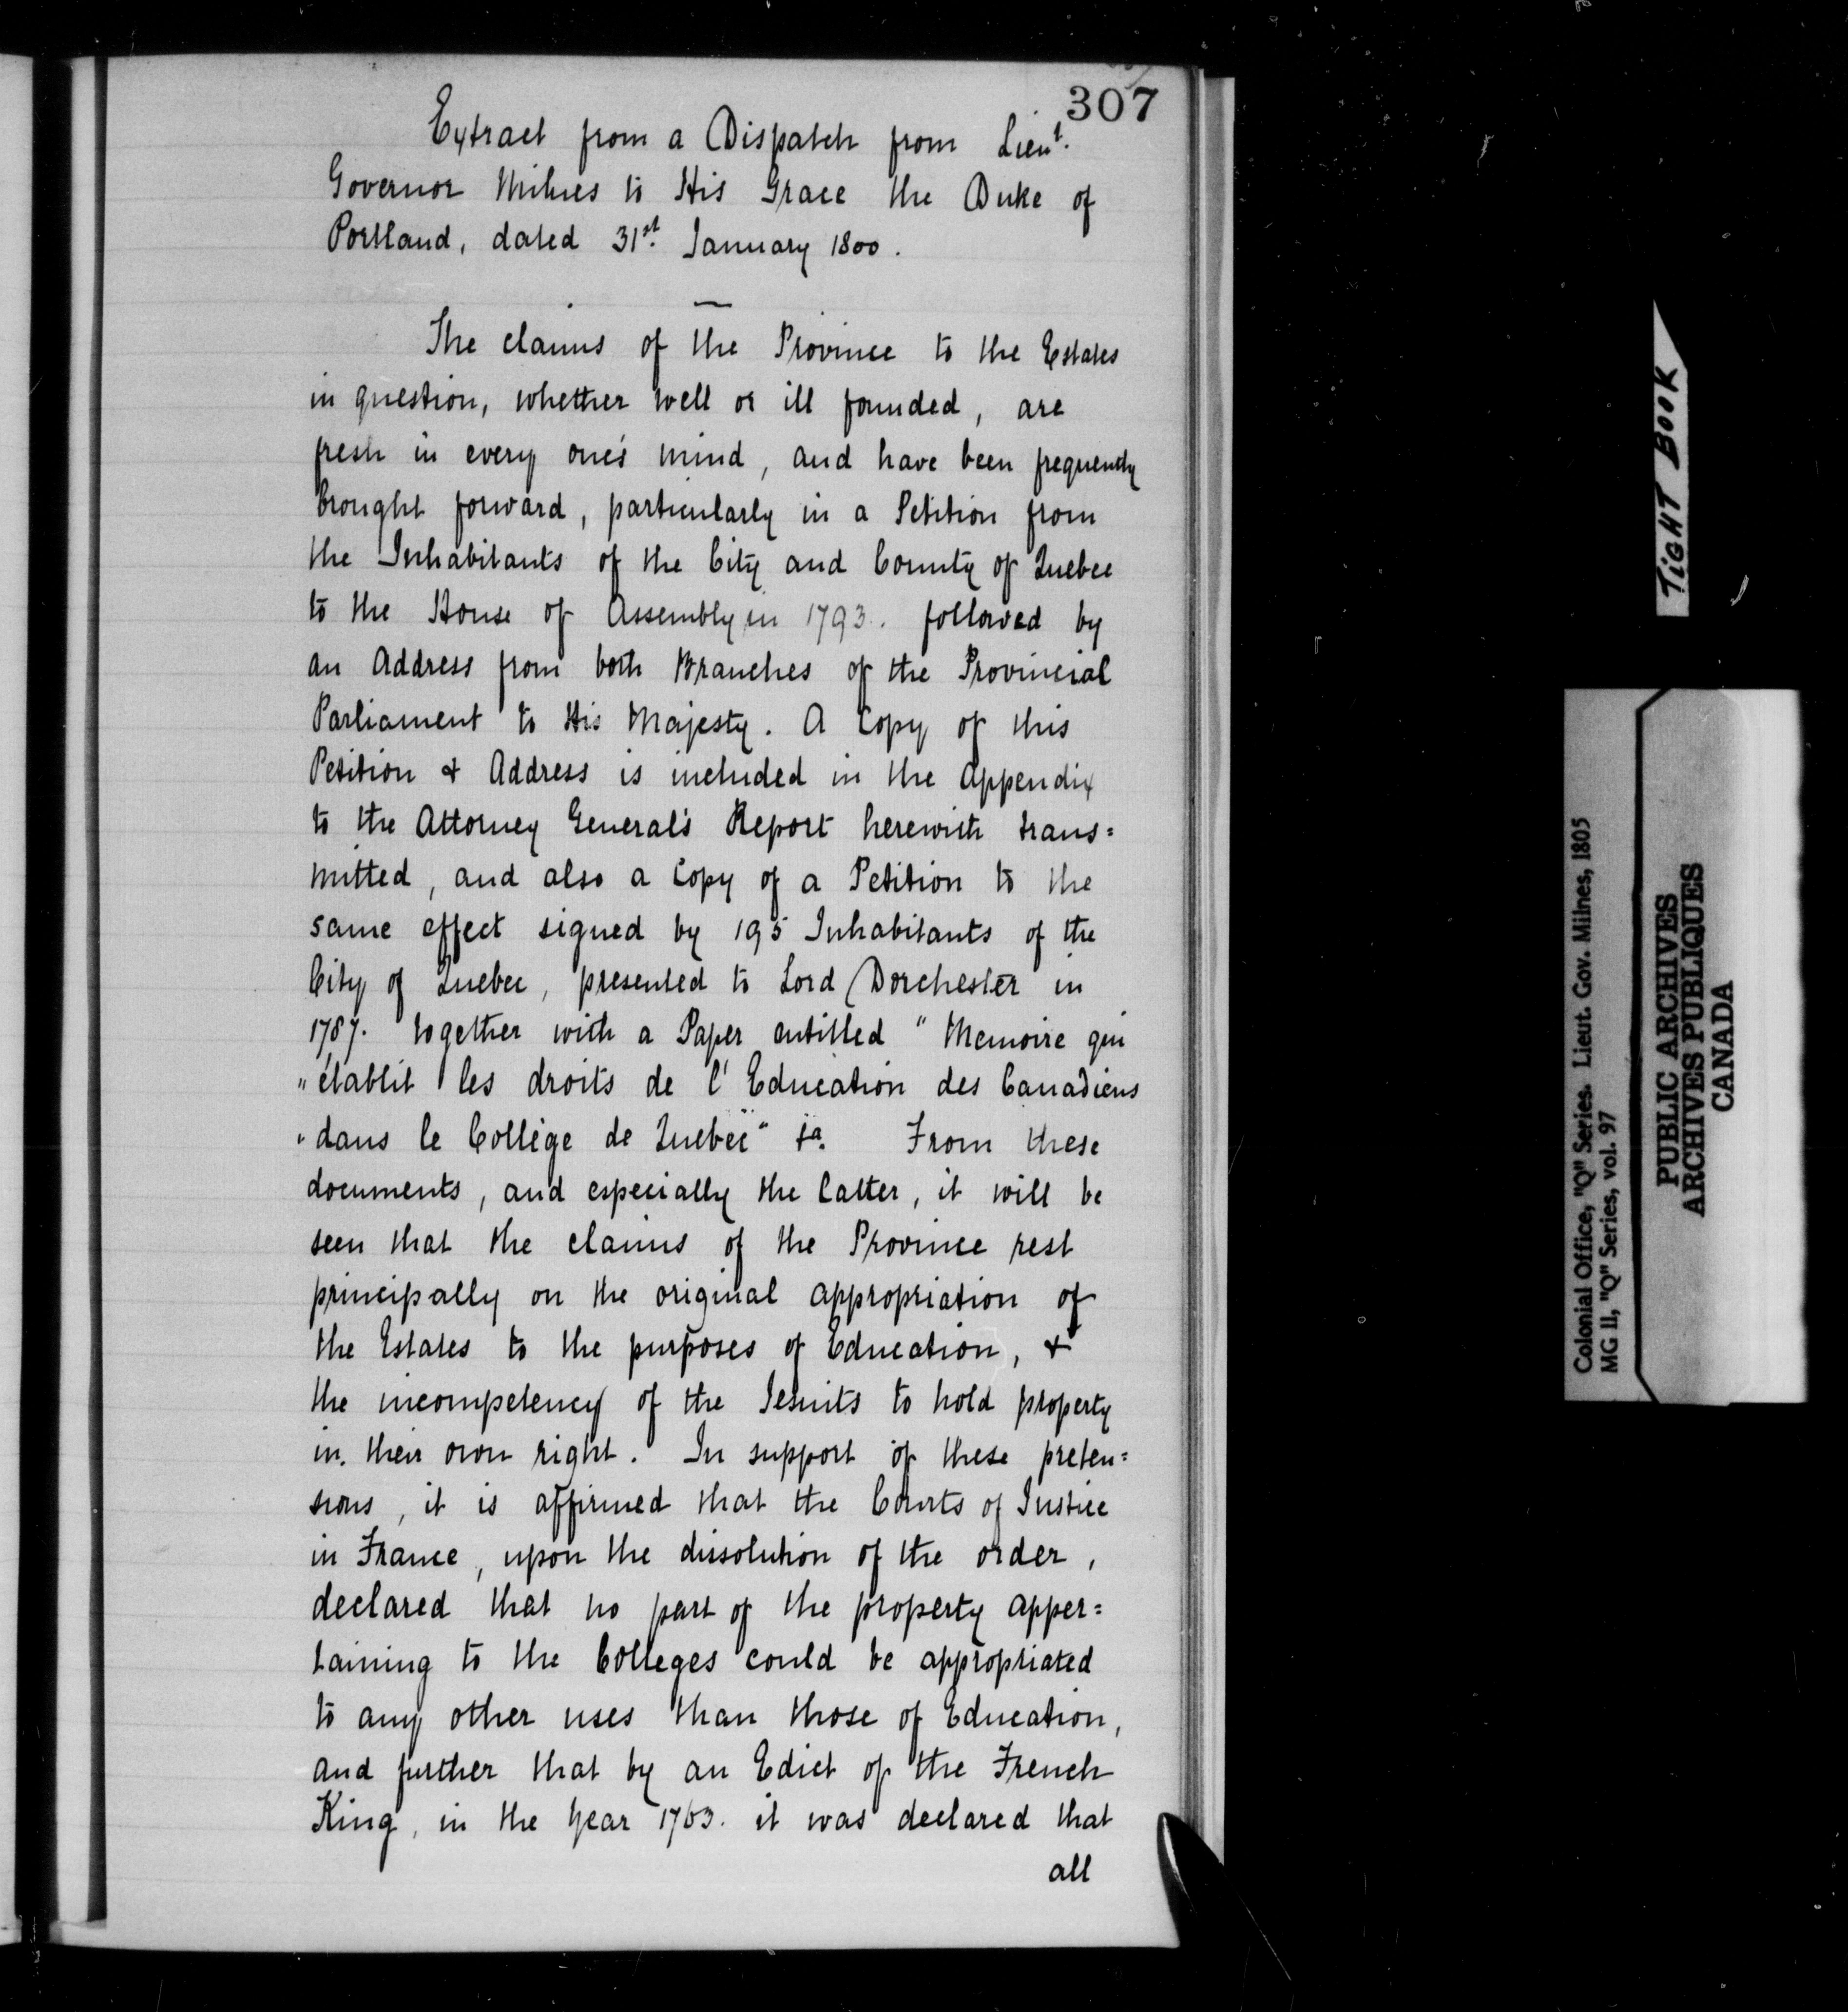 307
Extract from a Dispatch from Lieut.
Governor Milnes to His Grace the Duke of
Portland, dated 31st. January 1800.
The claims of the Province to the Estates
in question, whether well or ill founded, are
fresh in every one's mind, and have been frequently
brought forward, particularly in a Petition from
the Inhabitants of the City and County of Quebec
to the House of Assembly in 1793. followed by
an Address from both Branches of the Provincial
Parliament to His Majesty. A Copy of this
Petition & Address is included in the Appendix
to the Attorney General's Report herewith trans=
mitted, and also a Copy of a Petition to the
same effect signed by 195 Inhabitants of the
City of Quebec, presented to Lord Dorchester in
1787. together with a Paper entitled "Memoire qui
"établit les droits de l'Education des Canadiens
"dans le Collège de Quebec" &a. From these
documents, and especially the latter, it will be
seen that the claims of the Province rest
principally on the original appropriation of
the Estates to the purposes of Education, &
the incompetency of the Jesuits to hold property
in their own right. In support of these preten=
sions, it is affirmed that the Courts of Justice
in France, upon the dissolution of the order,
declared that no part of the property apper=
taining to the Colleges could be appropriated
to any other uses than those of Education,
and further that by an Edict of the French
King, in the Year 1763. it was declared that
all
TIGHT BOOK
Colonial Office, "Q" Series. Lieut. Gov. Milnes, 1805
MG 11, "Q" Series, vol. 97
PUBLIC ARCHIVES
ARCHIVES PUBLIQUES
CANADA